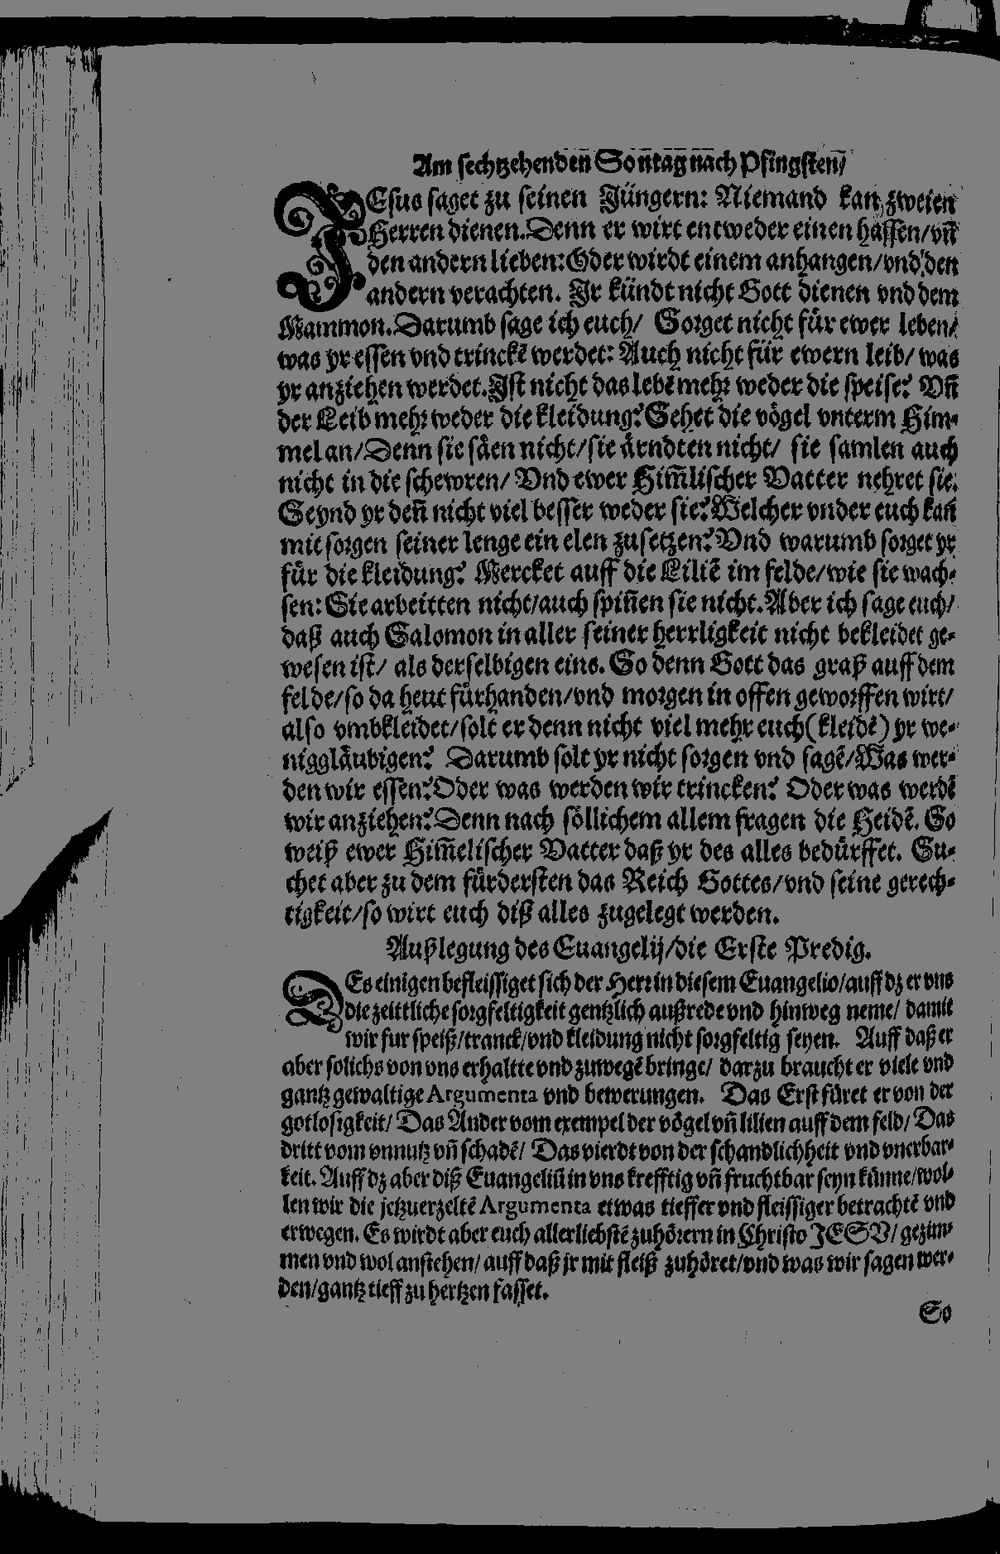 Am sechtzehenden Sontag nach Pfingsten/
JEsus saget zu seinen Jüngern: Niemand kan zweien
Herren dienen. Denn er wirt entweder einen hassen/ vñ
den andern lieben: Oder wirdt einem anhangen/ vnd den
andern verachten. Jr kündt nicht Gott dienen vnd dem
Mammon. Darumb sage ich euch/ Sorget nicht für ewer leben/
was yr essen vnd trinckē werdet: Auch nicht für ewern leib/ was
yr anziehen werdet. Ist nicht das lebē mehr weder die speise? Vñ
der Leib mehr weder die kleidung? Sehet die vögel vnterm Him-
mel an/ Denn sie säen nicht/ sie ärndten nicht/ sie samlen auch
nicht in die schewren/ Vnd ewer Him̄lischer Vatter nehret sie.
Seynd yr deñ nicht viel besser weder sie? Welcher vnder euch kan
mit sorgen seiner lenge ein elen zusetzen? Vnd warumb sorget yr
für die kleidung? Mercket auff die Liliē im felde/ wie sie wach-
sen: Sie arbeitten nicht/ auch spiñen sie nicht. Aber ich sage euch/
daß auch Salomon in aller seiner herrligkeit nicht bekleidet ge-
wesen ist/ als derselbigen eins. So denn Gott das graß auff dem
felde/ so da heut fürhanden/ vnd morgen in offen geworffen wirt/
also vmbkleidet/ solt er denn nicht viel mehr euch (kleidē) yr we-
niggläubigen? Darumb solt yr nicht sorgen vnd sagē/ Was wer-
den wir essen? Oder was werden wir trincken? Oder was werdē
wir anziehen? Denn nach söllichem allem fragen die Heidē. So
weiß ewer Him̄elischer Vatter daß yr des alles bedürffet. Su-
chet aber zu dem fürdersten das Reich Gottes/ vnd seine gerech-
tigkeit/ so wirt euch diß alles zugelegt werden.
Außlegung des Euangelij/ die Erste Predig.
DEs einigen befleissiget sich der Herr in diesem Euangelio/ auff dz er vns
die zeittliche sorgfeltigkeit gentzlich außrede vnd hinweg neme/ damit
wir fur speiß/ tranck/ vnd kleidung nicht sorgfeltig seyen. Auff daß er
aber solichs von vns erhaltte vnd zuwegē bringe/ darzu braucht er viele vnd
gantz gewaltige Argumenta vnd bewerungen. Das Erst füret er von der
gotlosigkeit/ Das Ander vom exempel der vögel vñ lilien auff dem feld/ Das
dritt vom vnnutz vñ schadē/ Das vierdt von der schandlichheit vnd vnerbar-
keit. Auff dz aber diß Euangeliū in vns krefftig vñ fruchtbar seyn künne/ wol-
len wir die jetzuerzeltē Argumenta etwas tieffer vnd fleissiger betrachtē vnd
erwegen. Es wirdt aber euch allerliebstē zuhörern in Christo JESV/ gezim-
men vnd wol anstehen/ auff daß jr mit fleiß zuhöret/ vnd was wir sagen wer-
den/ gantz tieff zu hertzen fasset.
So